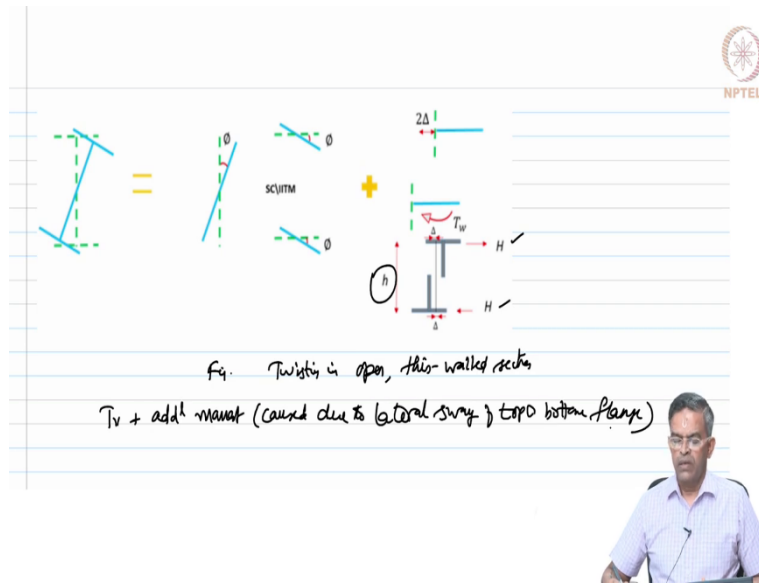 NPTEL
2Δ
Ø
Ø
SC\IITM
T_w
Δ
H
h
Ø
H
Δ
Fig. Twisting in open, thin-walled section
Tv + addl moment (caused due to lateral sway of top & bottom flange)